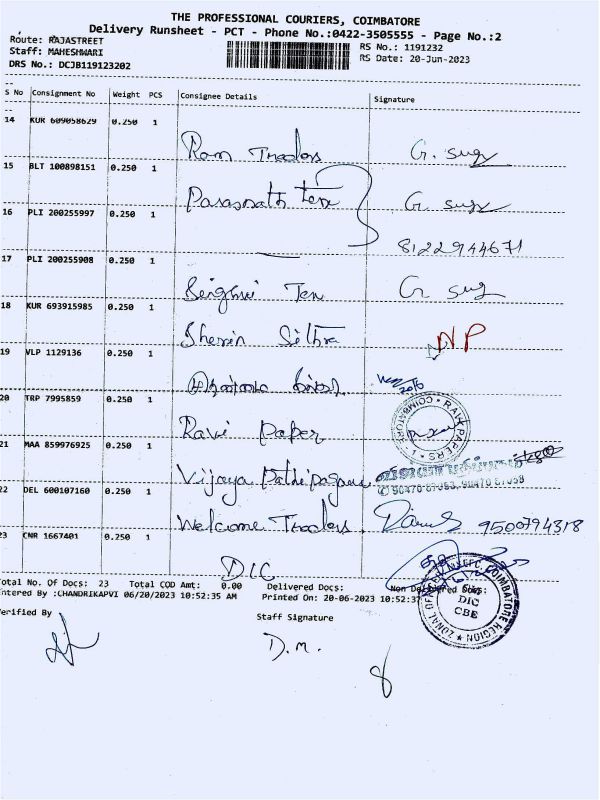 THE PROFESSIONAL COURIERS, COIMBATORE
Delivery Runsheet - PCT - Phone No.:0422-3505555 - Page No.:2
Route: RAJASTREET
RS No.: 1191232
Staff: MAHESHWARI
RS Date: 20-Jun-2023
DRS No.: DCJB119123202
S No Consignment No Weight PCS Consignee Details Signature
14 KUR 609058629 0.250 1
Ram Traders G. sugy
15 BLT 100898151 0.250 1
Parasnath Tex G. sugy
16 PLI 200255997 0.250 1
8122944671
17 PLI 200255908 0.250 1
Tex G sug
18 KUR 693915985 0.250 1
Sherin Silthra NP
19 VLP 1129136 0.250 1
20 TRP 7995859 0.250 1
Ravi Paper
RAVI PAPERS COIMBATORE - 1
21 MAA 859976925 0.250 1
Vijaya Pathipagam
22 DEL 600107160 0.250 1
Welcome Traders 9500794318
23 CNR 1667401 0.250 1
DIC
Total No. Of Docs: 23 Total COD Amt: 0.00 Delivered Docs: Non Delivered Docs:
Entered By :CHANDRIKAPVI 06/20/2023 10:52:35 AM Printed On: 20-06-2023 10:52:37
DIC
CBE
COIMBATORE REGION
Verified By Staff Signature
D.M.